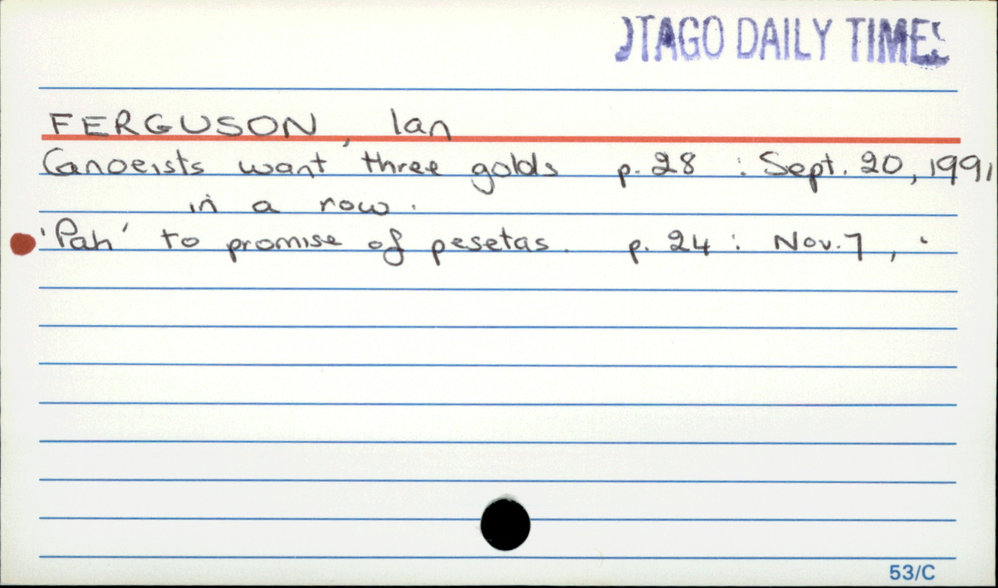 OTAGO DAILY TIMES
FERGUSON, Ian
Canoeists want three golds p. 28 : Sept. 20, 1991
in a row.
'Pah' to promise of pesetas. p. 24 : Nov. 7, "
53/C